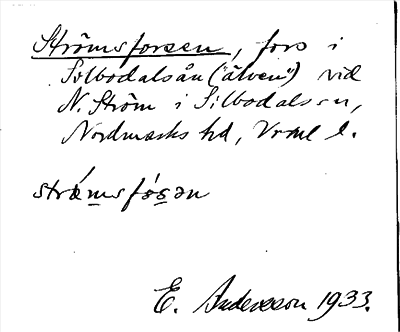 Strömsforsen, fors i
Silbodalsån ("älven") vid
N. Ström i Silbodals sn,
Nordmarks hd, Vrml l.
strǿmsfǿsən
E. Andersson 1933.